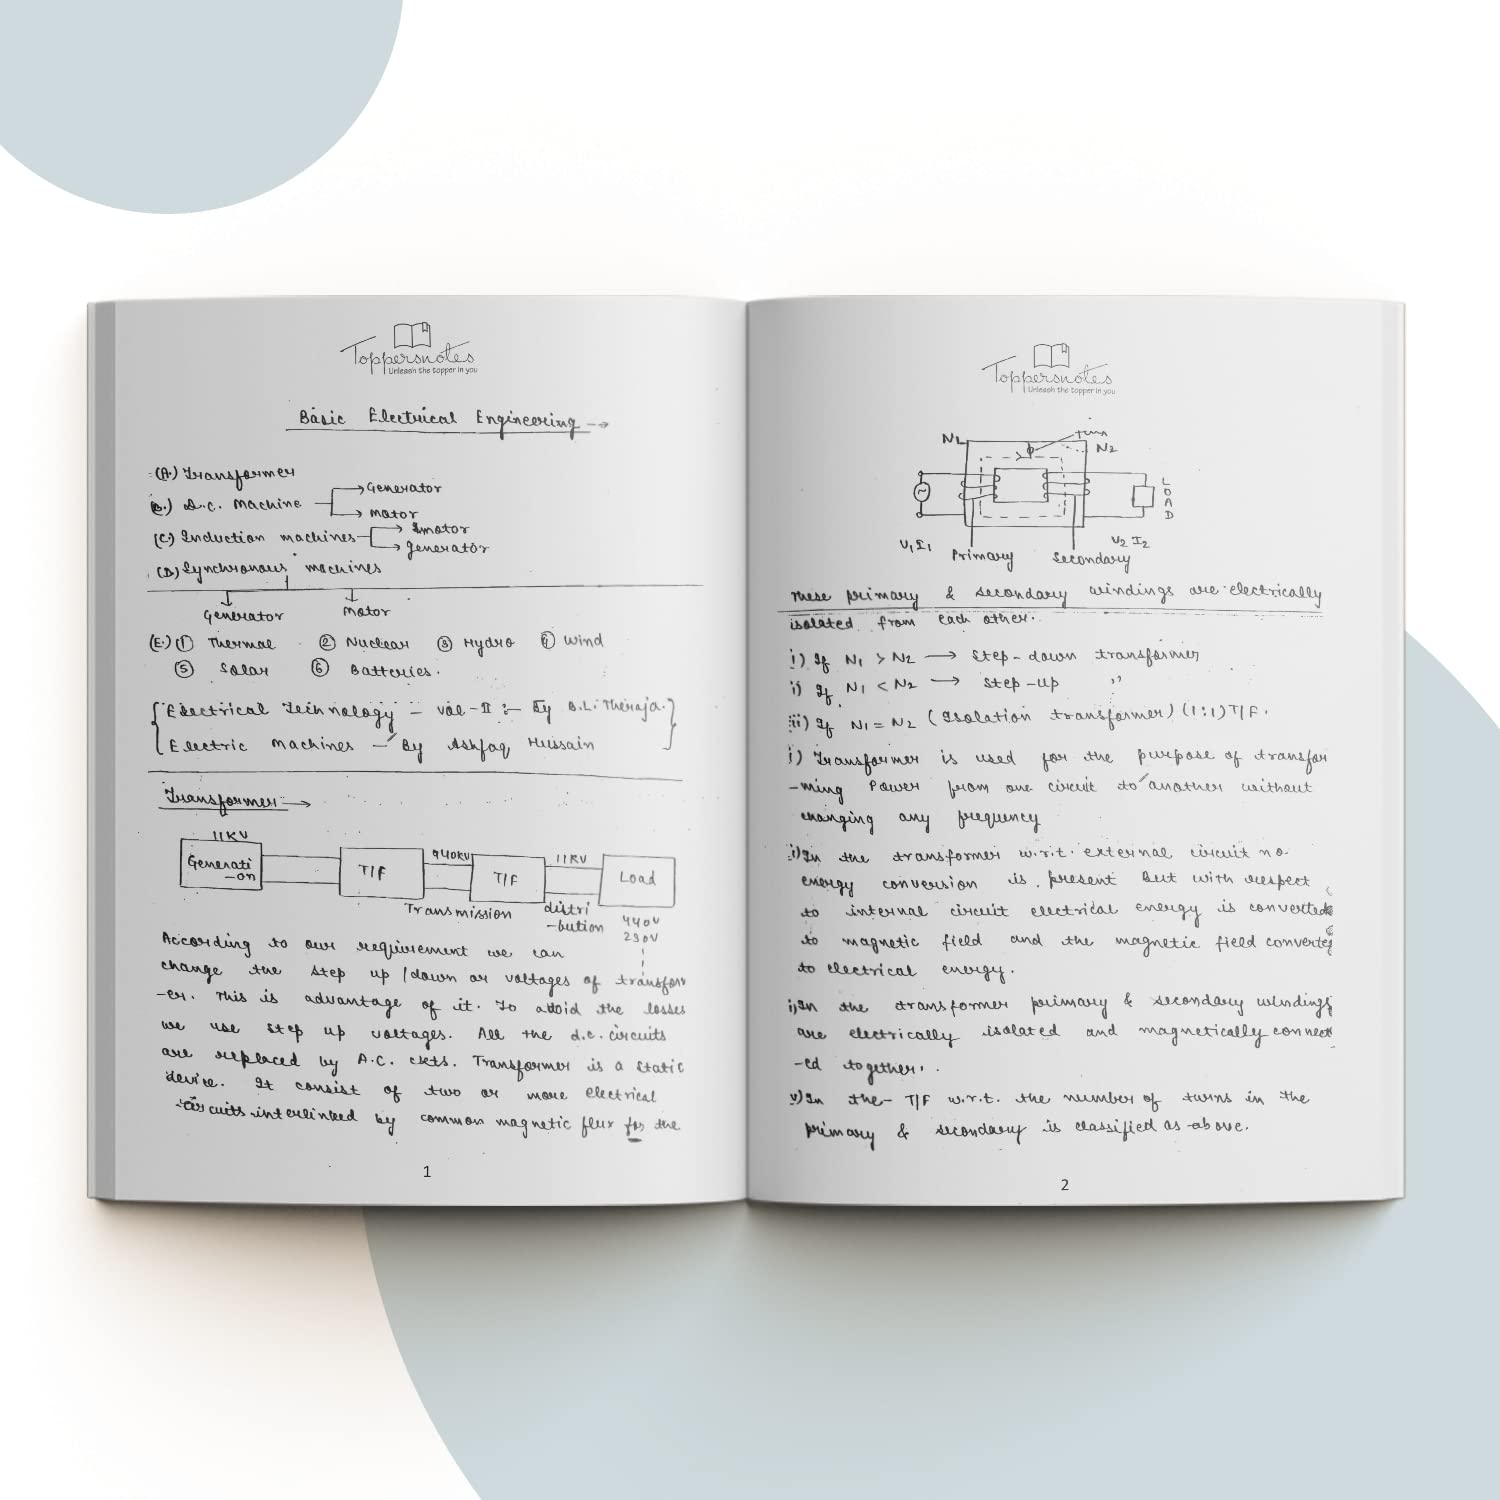 Toppersnotes
Unleash the topper in you
Basic Electrical Engineering →
(A.) Transformer
(B.) D.C. Machine
Generator
Motor
(C.) Induction machines
motor
generator
(D.) Synchronous machines
Generator
Motor
(E.) ① Thermal ② Nuclear ③ Hydro ④ Wind
⑤ Solar ⑥ Batteries.
{Electrical Technology - vol-II :- By B.L. Theraja.}
{Electric Machines - By Ashfaq Hussain}
Transformer →
11KV
Generati
-on
T/F
440KV
T/F
11KV
Load
Transmission
distri
-bution
440V
230V
According to our requirement we can
change the step up /down or voltages of transform
-er. This is advantage of it. To avoid the losses
we use step up voltages. All the d.c. circuits
are replaced by A.C. ckts. Transformer is a static
device. It consist of two or more electrical
circuits interlinked by common magnetic flux for the
1
Toppersnotes
Unleash the topper in you
N1
ϕ
N2
~
LOAD
V1 I1
Primary
Secondary
V2 I2
These primary & secondary windings are electrically
isolated from each other.
i) If N1 > N2 → Step-down transformer
i) If N1 < N2 → Step-up "
iii) If N1 = N2 (Isolation transformer) (1:1) T/F.
i) Transformer is used for the purpose of transfor
-ming Power from one circuit to another without
changing any frequency
i) In the transformer w.r.t. external circuit no
energy conversion is present But with respect
to internal circuit electrical energy is converted
to magnetic field and the magnetic field converted
to electrical energy.
i) In the transformer primary & secondary windings
are electrically isolated and magnetically connect
-ed together.
v) In the - T/F w.r.t. the number of turns in the
primary & secondary is classified as above.
2